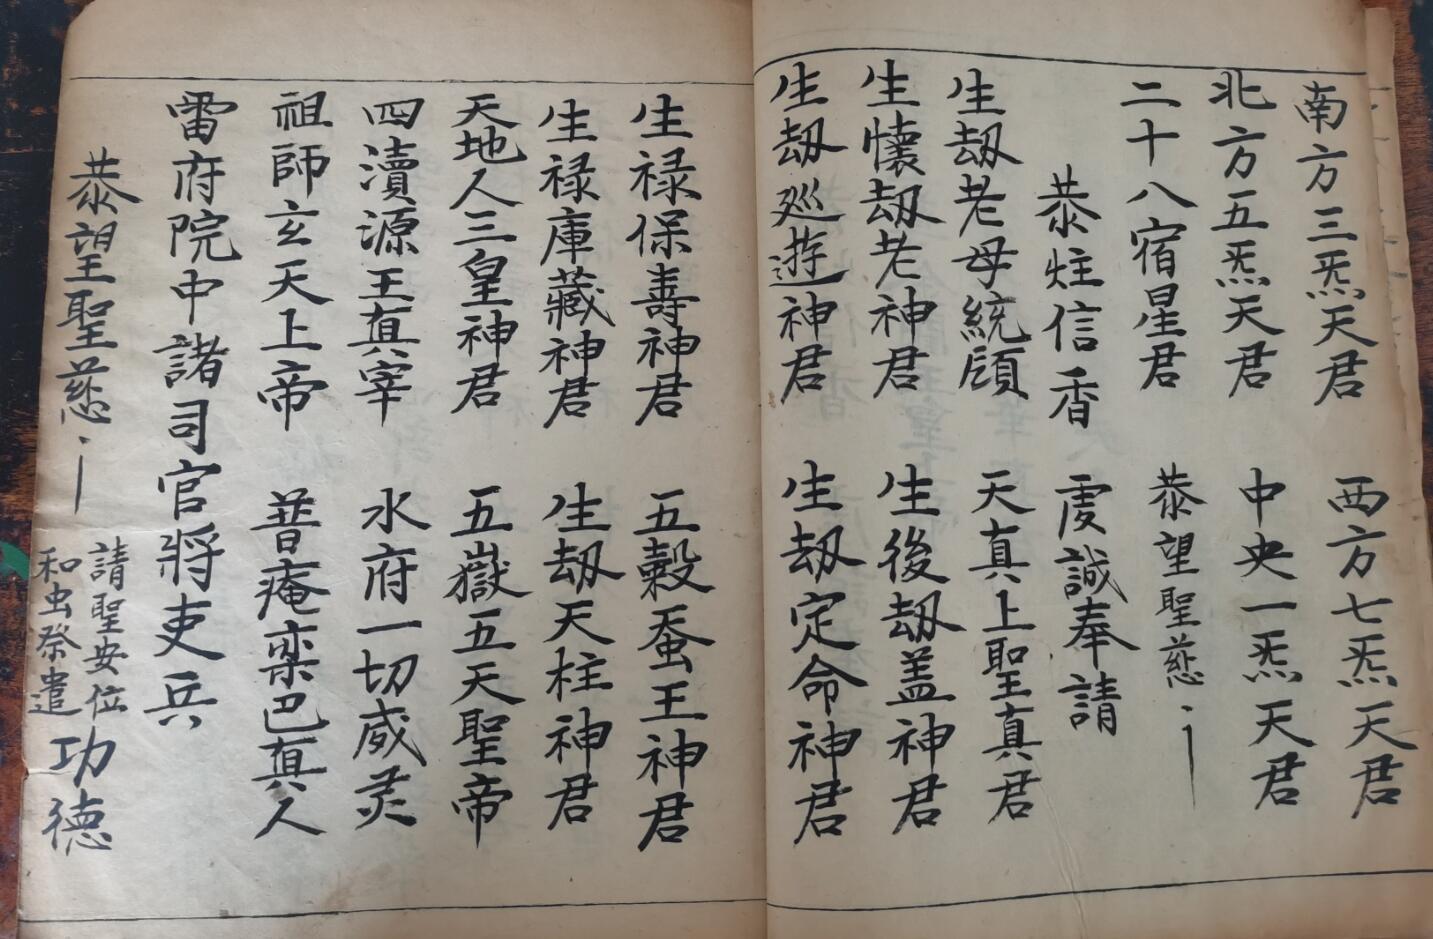 南方三炁天君　西方七炁天君
北方五炁天君　中央一炁天君
二十八宿星君　恭望聖慈
恭炷信香　虔誠奉請
生刼老母統頋　天真上聖真君
生懷刼老神君　生後刼盖神君
生刼廵遊神君　生刼定命神君
生禄保壽神君　五穀蚕王神君
生禄庫藏神君　生刼天柱神君
天地人三皇神君　五嶽五天聖帝
四瀆源王真宰　水府一切威灵
祖師玄天上帝　普庵栾巴真人
雷府院中諸司官將吏兵
恭望聖慈　請聖安位
和虫祭遣　功德